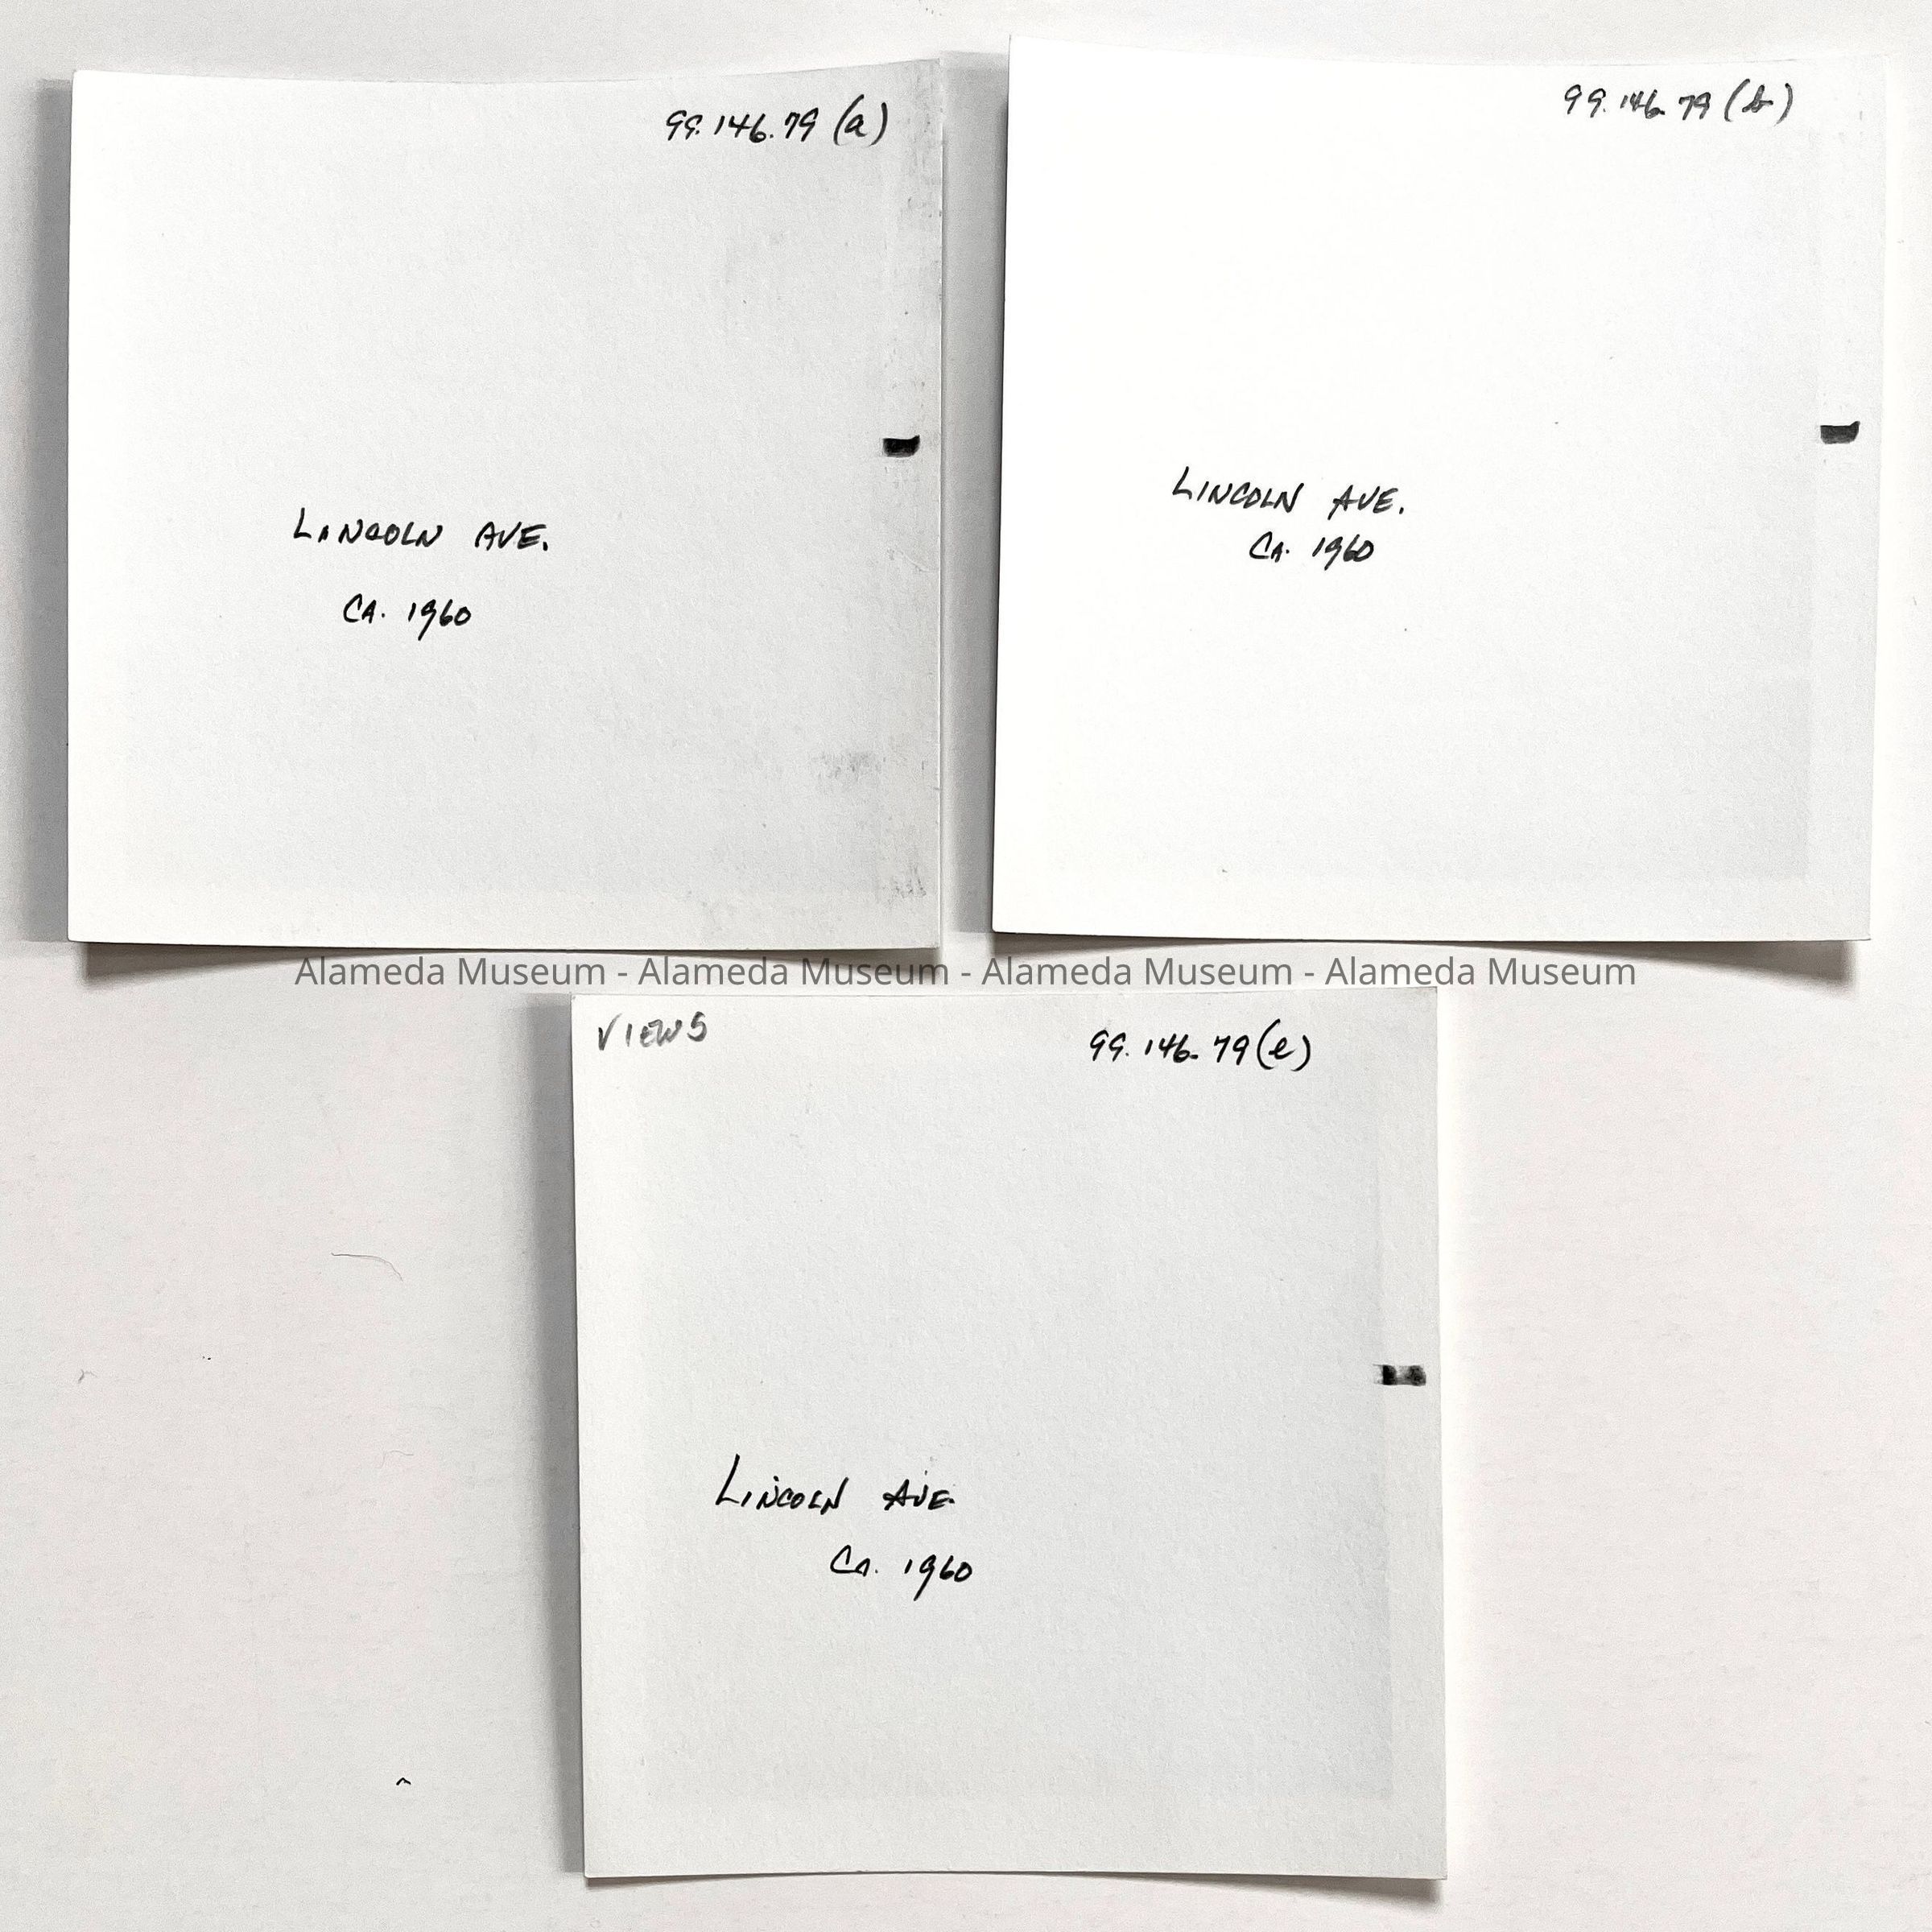 99.146.79 (a)
LINCOLN AVE.
CA. 1960
99.146.79 (b)
LINCOLN AVE.
CA. 1960
Alameda Museum - Alameda Museum - Alameda Museum - Alameda Museum
VIEWS
99.146.79 (e)
LINCOLN AVE.
CA. 1960